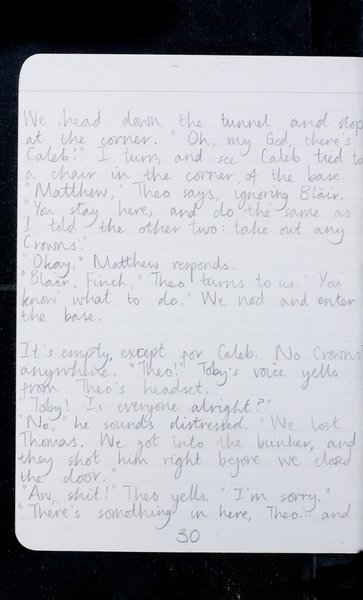 We head down the tunnel and stop
at the corner. "Oh, my God, there's
Caleb!" I turn, and see Caleb tied to
a chair in the corner of the base.
"Matthew," Theo says, ignoring Blair.
"You stay here, and do the same as
I told the other two: take out any
Crowns."
"Okay," Matthew responds.
"Blair, Finch," Theo turns to us. "You
know what to do." We nod and enter
the base.
It's empty, except for Caleb. No Crowns
anywhere. "Theo!" Toby's voice yells
from Theo's headset.
"Toby! Is everyone alright?"
"No," he sounds distressed. "We lost
Thomas. We got into the bunker, and
they shot him right before we closed
the door."
"Aw, shit!" Theo yells. "I'm sorry."
"There's something in here, Theo... and
30